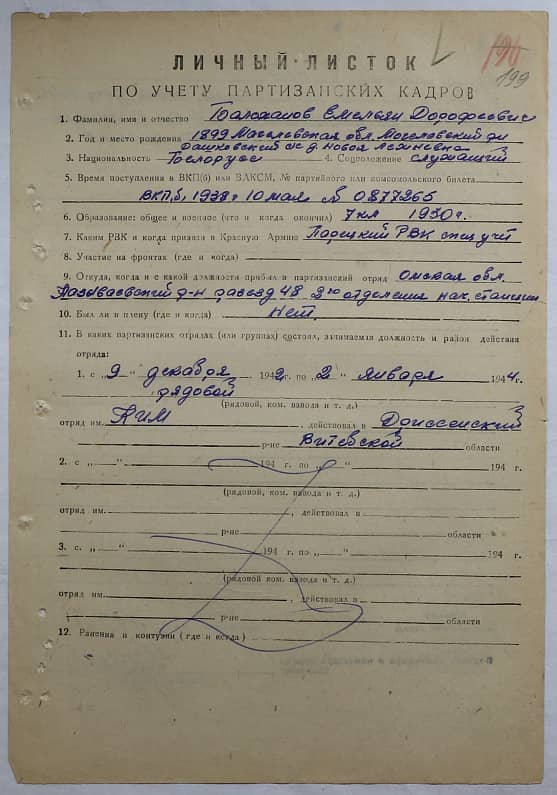 190
199
ЛИЧНЫЙ ЛИСТОК
ПО УЧЕТУ ПАРТИЗАНСКИХ КАДРОВ
1. Фамилия, имя и отчество Емельян Дорофеевич
2. Год и место рождения 1899 Могилевская обл. Могилевский р-н
с/с д. новая
3. Национальность Белорус 4. Соцположение служащий
5. Время поступления в ВКП(б) или ВЛКСМ, № партийного или комсомольского билета
ВКП(б) 1938 г 10 мая № 0877265
6. Образование: общее и военное (что и когда окончил) 7 кл 1930 г.
7. Каким РВК и когда призван в Красную Армию РВК спец учет
8. Участие на фронтах (где и когда)
9. Откуда, когда и с какой должности прибыл в партизанский отряд Омская обл.
р-н разъезд 48 2го отделения нач. станции
10. Был ли в плену (где и когда) Нет.
11. В каких партизанских отрядах (или группах) состоял, занимаемая должность и район действия
отряда:
1. с „9“ декабря 1942 г. по „2“ января 1944 г.
рядовой
(рядовой, ком. взвода и т. д.)
отряд им. КИМ, действовал в Дриссенский
р-не Витебской области
2. с „ “ 194 г. по „ “ 194 г.
(рядовой, ком. взвода и т. д.)
отряд им. , действовал в
р-не области
3. с. „ “ 194 г. по „ “ 194 г.
(рядовой ком. взвода и т. д.)
отряд им. , действовал в
р-не области
12. Ранения и контузии (где и когда)